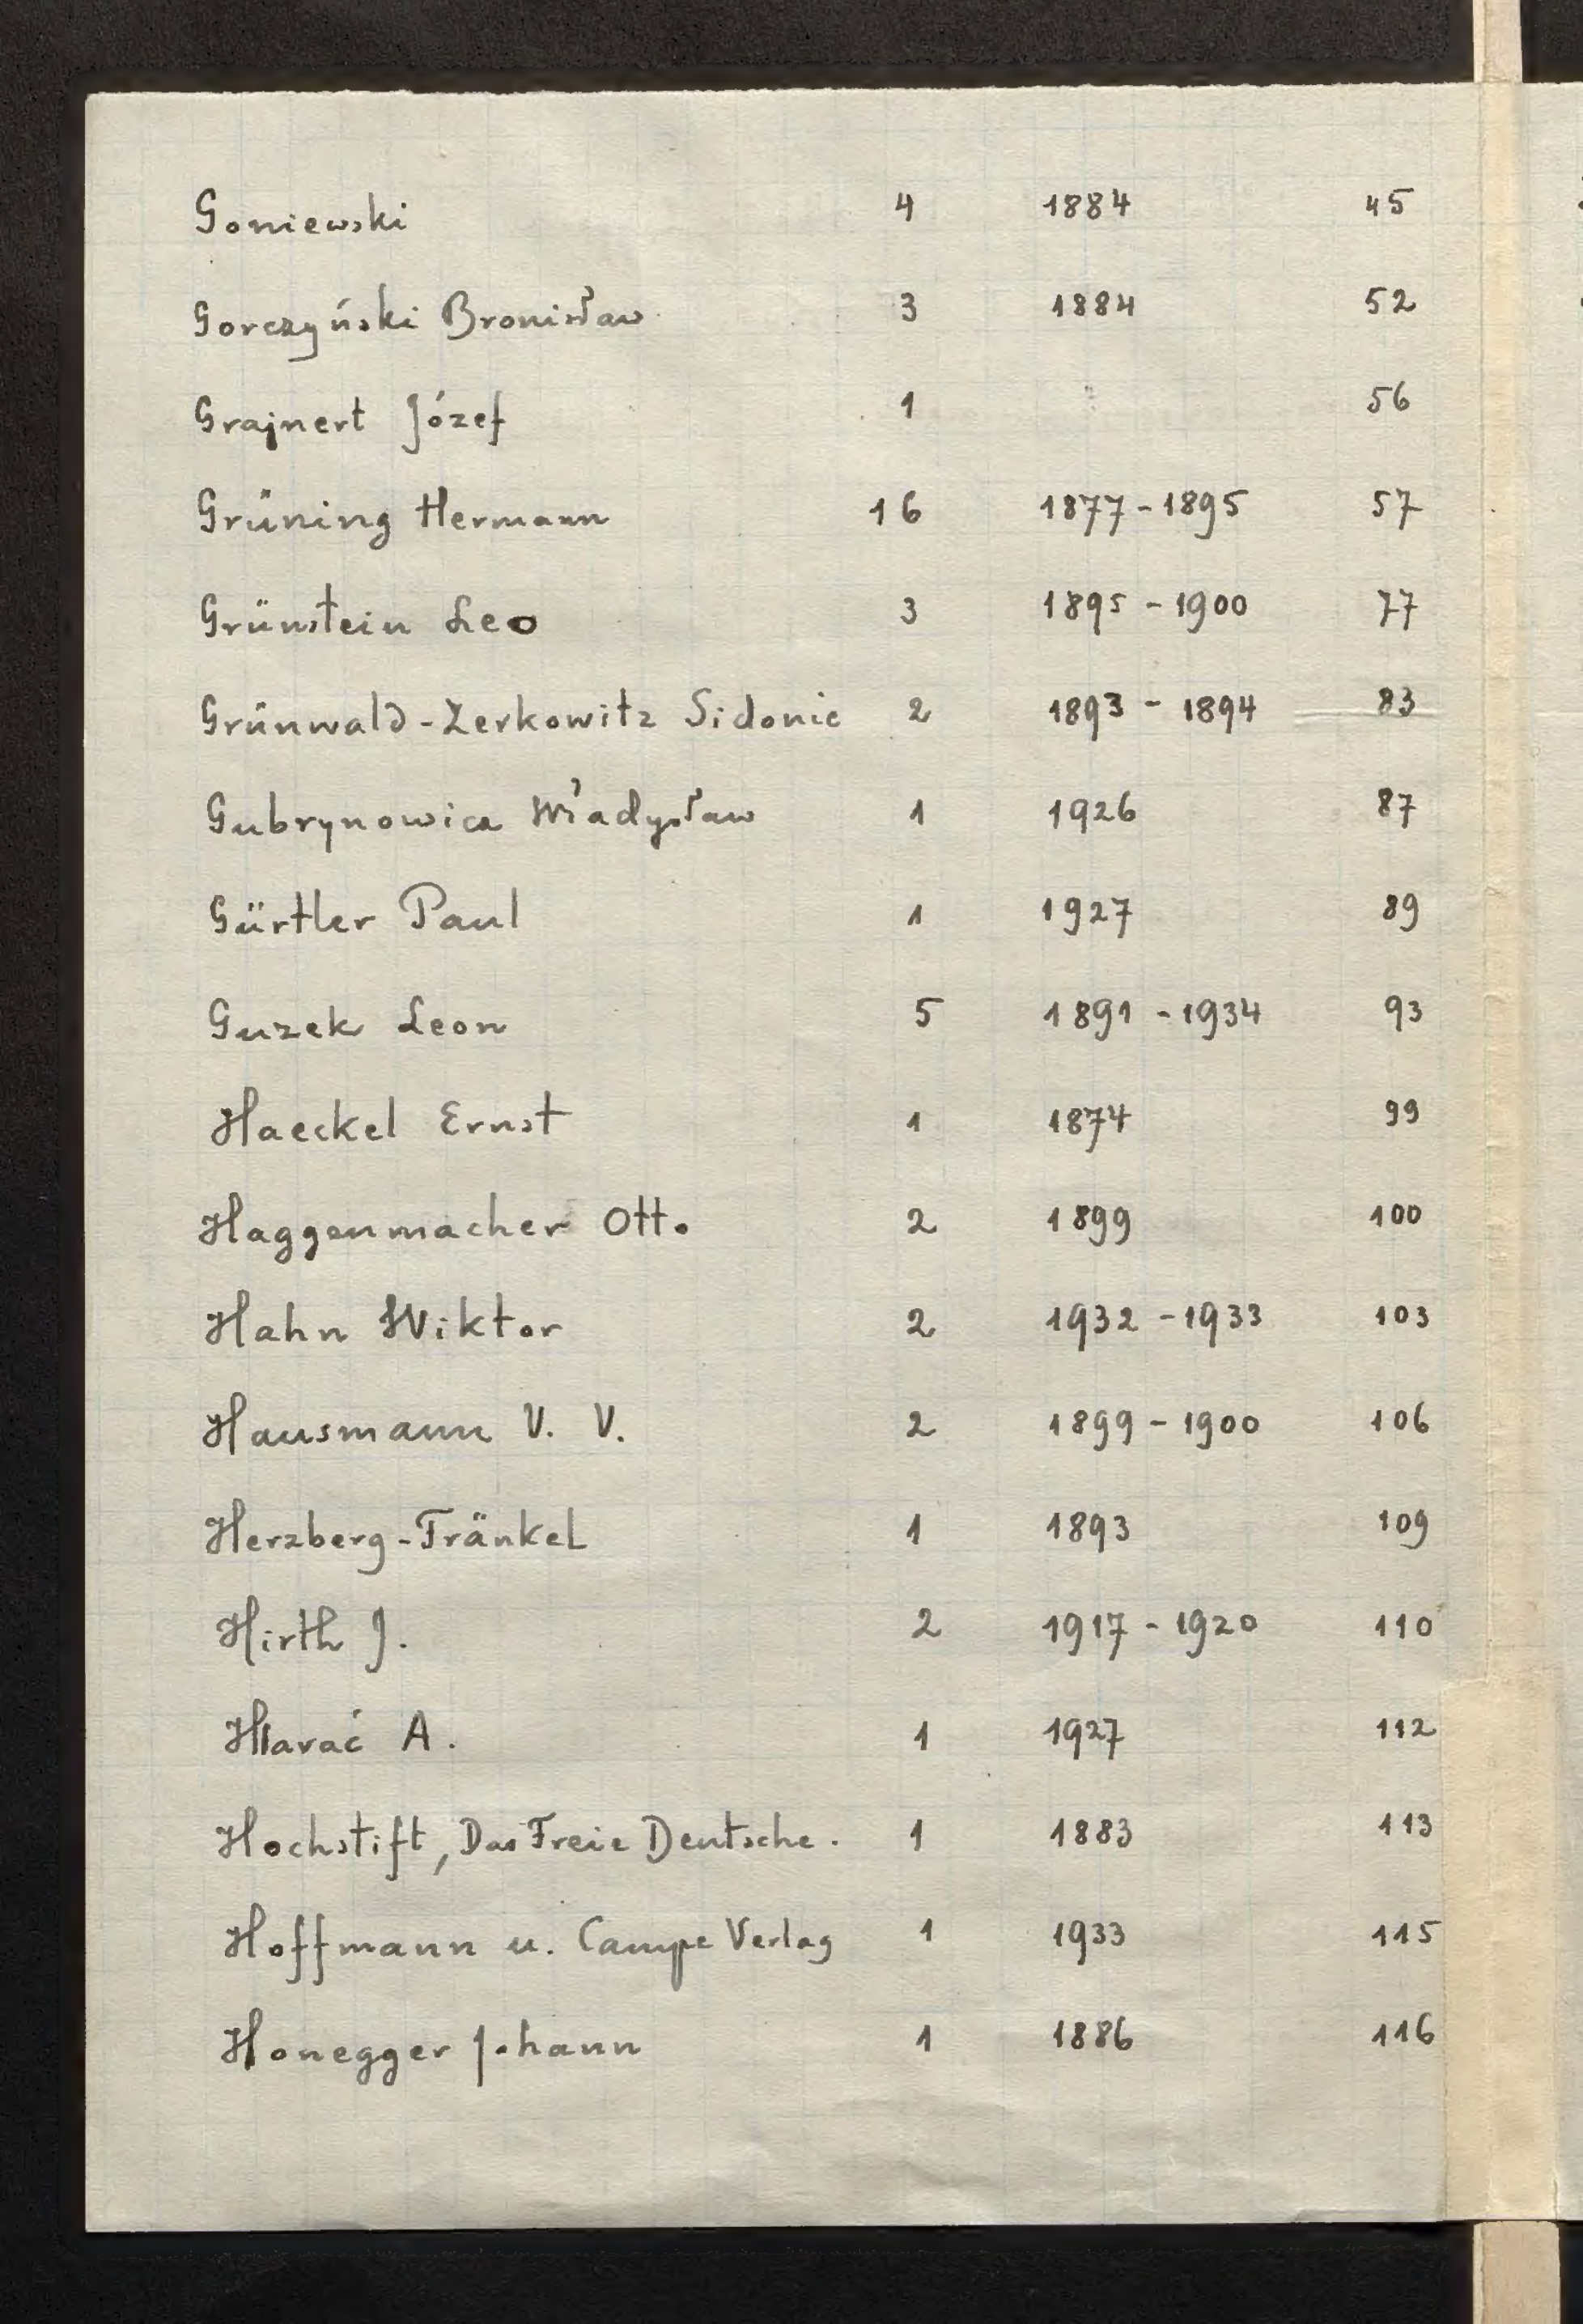 Goniewski 4 1884 45
Gorczyński Bronisław 3 1884 52
Grajnert Józef 1 56
Grüning Hermann 16 1877-1895 57
Grünstein Leo 3 1895-1900 77
Grünwald-Zerkowitz Sidonie 2 1893-1894 83
Gubrynowicz Władysław 1 1926 87
Gürtler Paul 1 1927 89
Guzek Leon 5 1891-1934 93
Haeckel Ernst 1 1874 99
Haggenmacher Otto 2 1899 100
Hahn Wiktor 2 1932-1933 103
Hausmann V. V. 2 1899-1900 106
Herzberg-Fränkel 1 1893 109
Hirth J. 2 1917-1920 110
Hlavać A. 1 1927 112
Hochstift, Das Freie Deutsche. 1 1883 113
Hoffmann u. Campe Verlag 1 1933 115
Honegger Johann 1 1886 116